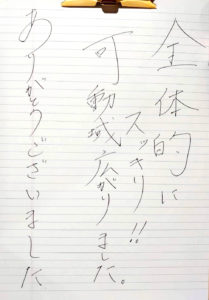 全体的に
スッキリ!!
可動域広がりました。
ありがとうございました